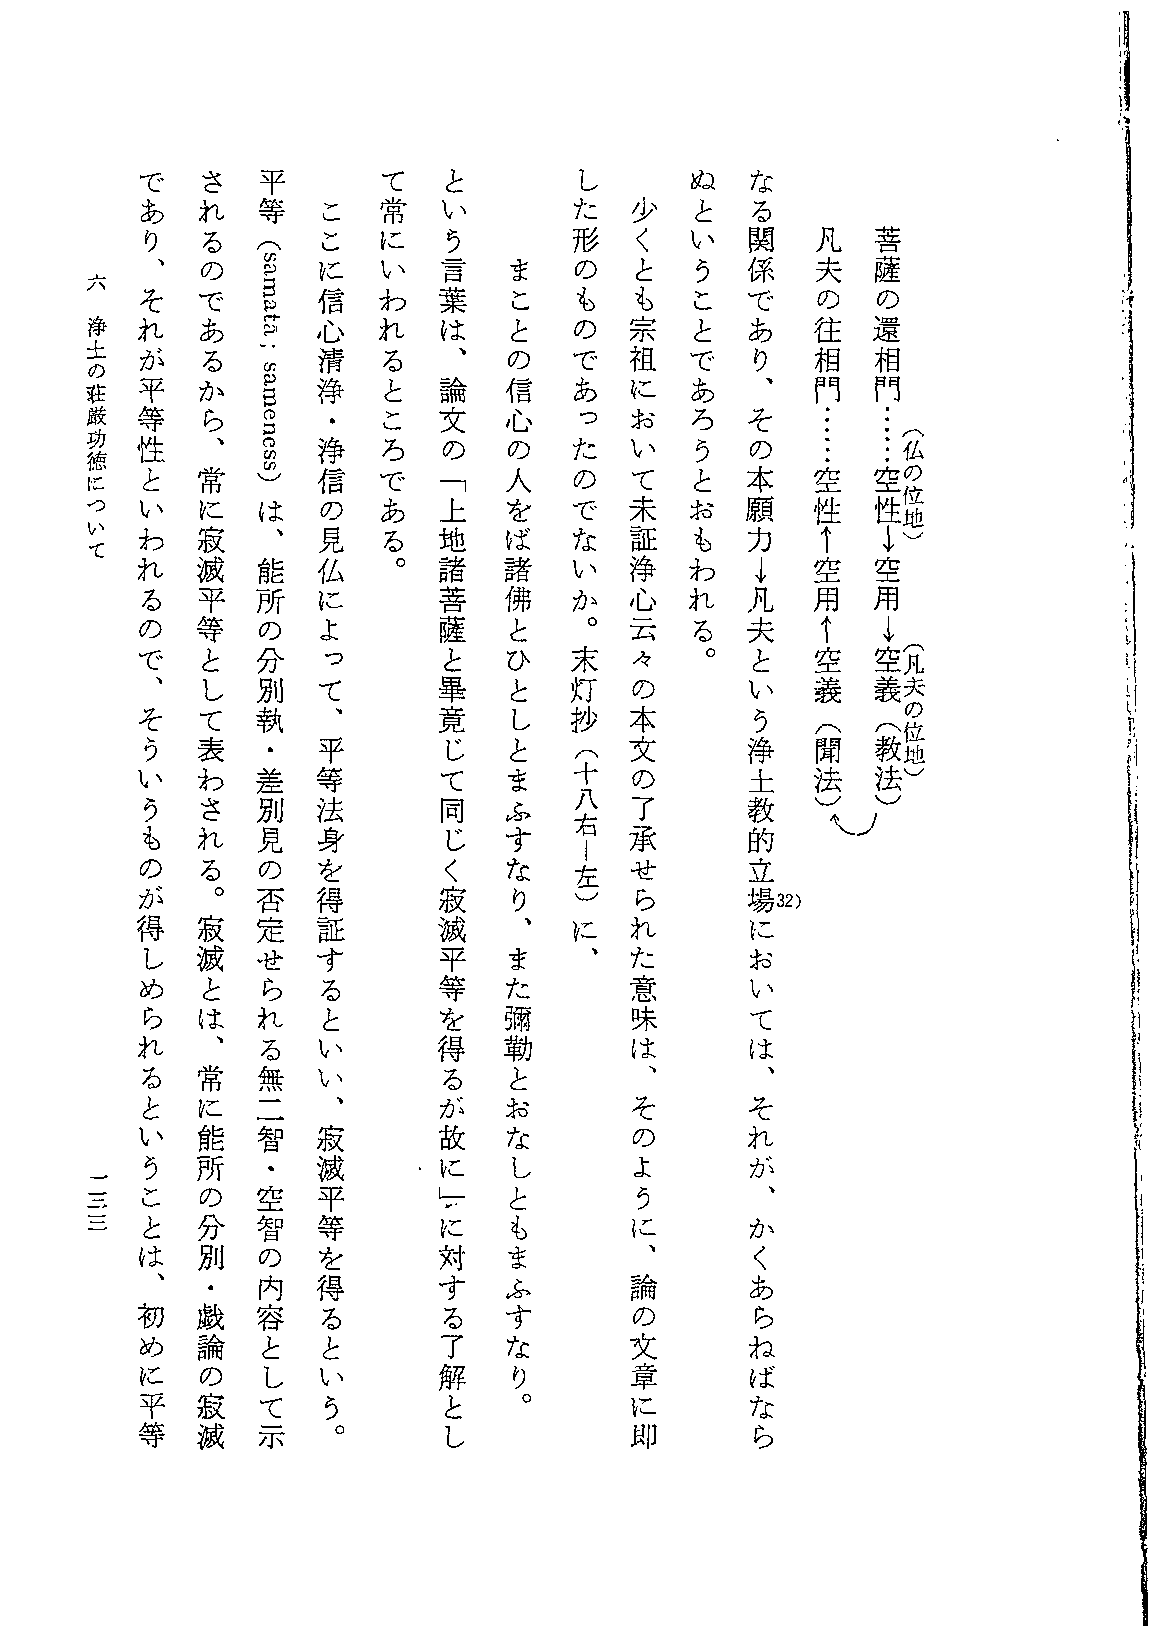 (仏の位地) (凡夫の位地)
菩薩の還相門……空性↓空用↓空義(教法)
凡夫の往相門……空性↑空用↑空義(聞法)
なる関係であり、その本願力↓凡夫という浄土教的立場32)においては、それが、かくあらねばなら
ぬということであろうとおもわれる。
少くとも宗祖において未証浄心云々の本文の了承せられた意味は、そのように、論の文章に即
した形のものであったのでないか。末灯抄(十八右―左)に、
まことの信心の人をば諸佛とひとしとまふすなり、また彌勒とおなしともまふすなり。
という言葉は、論文の「上地諸菩薩と畢竟じて同じく寂滅平等を得るが故に」に対する了解とし
て常にいわれるところである。
ここに信心清浄・浄信の見仏によって、平等法身を得証するといい、寂滅平等を得るという。
平等(samatā; sameness)は、能所の分別執・差別見の否定せられる無二智・空智の内容として示
されるのであるから、常に寂滅平等として表わされる。寂滅とは、常に能所の分別・戯論の寂滅
であり、それが平等性といわれるので、そういうものが得しめられるということは、初めに平等
六 浄土の荘厳功徳について
一三三